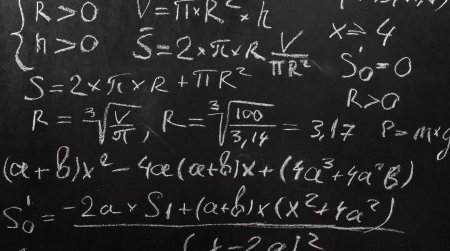 R>0 V=π×R²×h
h>0 S̄=2×π×R V/πR² x≥4
S=2×π×R+πR² S'₀=0
R>0
R=³√(V/π), R=³√(100/3,14)=3,17 P=m×g
(a+b)x²-4a(a+b)x+(4a³+4a²b)
S'₀=-2a×S₁+(a+b)x(x²+4a²)
(x-2a)²